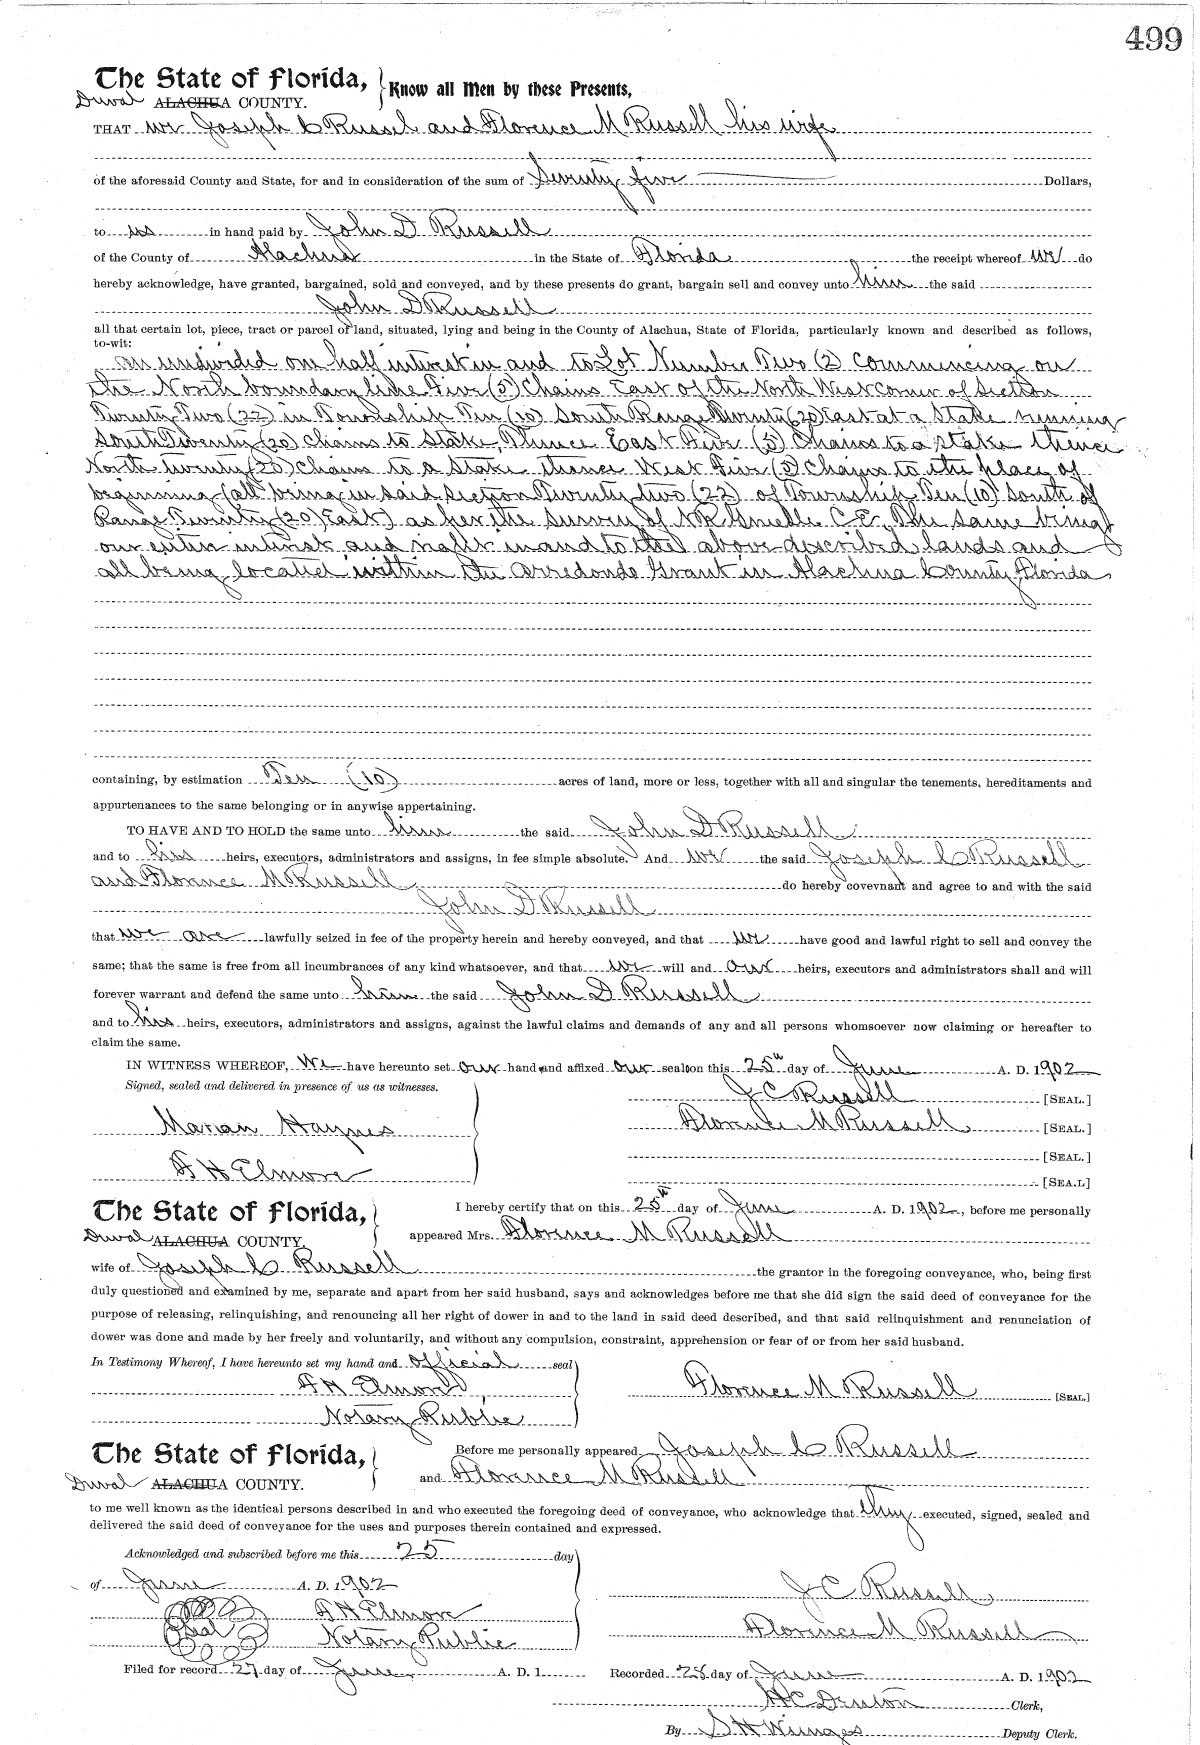 499
The State of Florida, Know all Men by these Presents,
Duval ALACHUA COUNTY.
THAT we Joseph C Russel and Florence M Russell his wife
of the aforesaid County and State, for and in consideration of the sum of Seventy five Dollars,
to us in hand paid by John D Russell
of the County of Alachua in the State of Florida the receipt whereof we do
hereby acknowledge, have granted, bargained, sold and conveyed, and by these presents do grant, bargain sell and convey unto him the said
John D Russell
all that certain lot, piece, tract or parcel of land, situated, lying and being in the County of Alachua, State of Florida, particularly known and described as follows,
to-wit:
an undivided one half interest in and to Lot Number Two (2) Commencing on
the North boundary line Five (5) Chains East of the North West Corner of Section
Twenty Two (22) in Township Ten (10) South Range Twenty (20) East at a Stake running
South Twenty (20) Chains to Stake, Thence East Five (5) Chains to a stake thence
North twenty (20) Chains to a Stake thence West Five (5) Chains to the place of
beginning (all being in said Section Twenty two (22) of Township Ten (10) South of
Range Twenty (20) East) as per the survey of C.E. The same being
our entire interest and right in and to the above described lands and
all being located within the Arredondo Grant in Alachua County Florida
containing, by estimation Ten (10) acres of land, more or less, together with all and singular the tenements, hereditaments and
appurtenances to the same belonging or in anywise appertaining.
TO HAVE AND TO HOLD the same unto him the said John D Russell
and to his heirs, executors, administrators and assigns, in fee simple absolute. And we the said Joseph C Russell
and Florence M Russell do hereby covevnant and agree to and with the said
John D Russell
that we are lawfully seized in fee of the property herein and hereby conveyed, and that we have good and lawful right to sell and convey the
same; that the same is free from all incumbrances of any kind whatsoever, and that we will and our heirs, executors and administrators shall and will
forever warrant and defend the same unto him the said John D Russell
and to his heirs, executors, administrators and assigns, against the lawful claims and demands of any and all persons whomsoever now claiming or hereafter to
claim the same.
IN WITNESS WHEREOF, We have hereunto set our hand and affixed our seal on this 25th day of June A. D. 1902
Signed, sealed and delivered in presence of us as witnesses.
J C Russell [SEAL.]
Marian Haynes
Florence M Russell [SEAL.]
[SEAL.]
F H Elmore
[SEA.L]
The State of Florida, I hereby certify that on this 25th day of June A. D. 1902, before me personally
Duval ALACHUA COUNTY. appeared Mrs. Florence M Russell
wife of Joseph C Russell the grantor in the foregoing conveyance, who, being first
duly questioned and examined by me, separate and apart from her said husband, says and acknowledges before me that she did sign the said deed of conveyance for the
purpose of releasing, relinquishing, and renouncing all her right of dower in and to the land in said deed described, and that said relinquishment and renunciation of
dower was done and made by her freely and voluntarily, and without any compulsion, constraint, apprehension or fear of or from her said husband.
In Testimony Whereof, I have hereunto set my hand and official seal
F H Elmore, Florence M Russell [SEAL.]
Notary Public
The State of Florida, Before me personally appeared Joseph C Russell
Duval ALACHUA COUNTY. and Florence M Russell
to me well known as the identical persons described in and who executed the foregoing deed of conveyance, who acknowledge that they executed, signed, sealed and
delivered the said deed of conveyance for the uses and purposes therein contained and expressed.
Acknowledged and subscribed before me this 25 day
of June A. D. 1902 J C Russell
F H Elmore
Seal Notary Public Florence M Russell
Filed for record 27 day of June A. D. 1 Recorded 28 day of June A. D. 1902
H C Denton Clerk,
By S H Wienges Deputy Clerk.